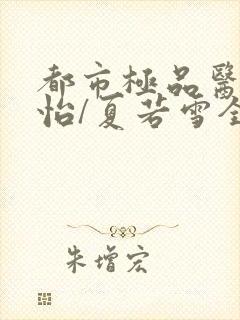 都市極品醫
怡/夏若雪全
朱增宏